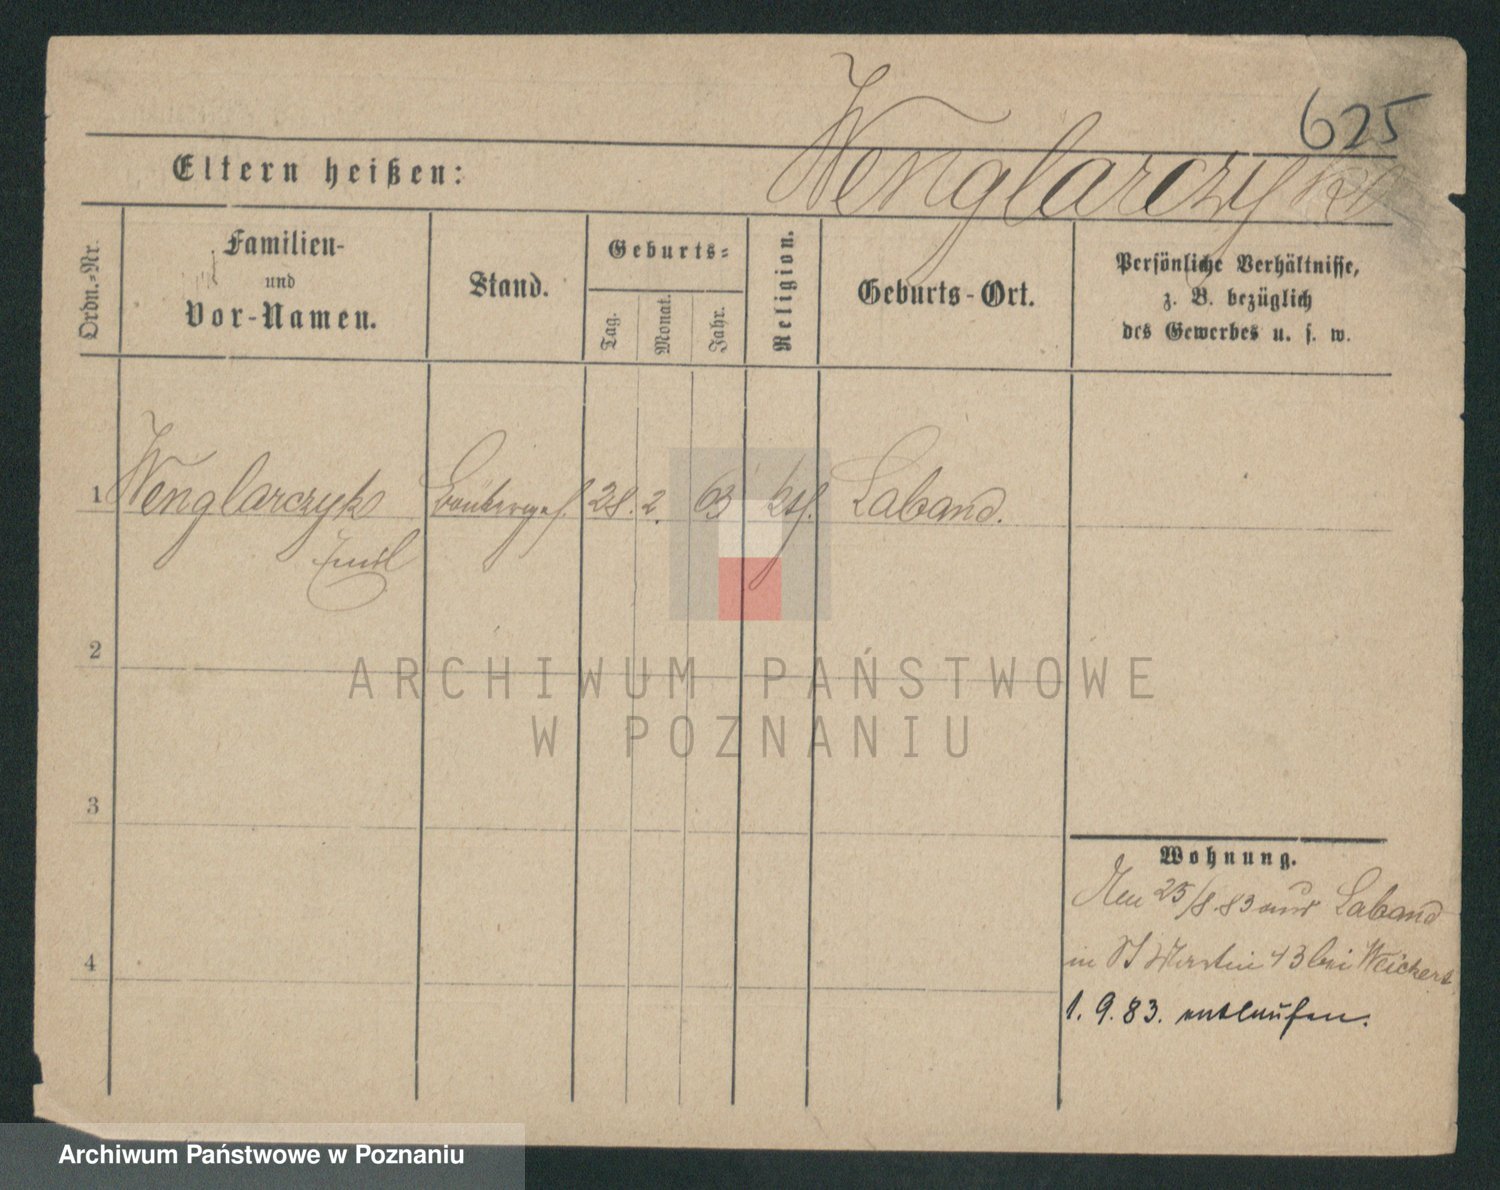 625
Wenglarczyk
Eltern heißen:
Ordn.-Nr.
Familien-
und
Vor-Namen.
Stand.
Geburts-
Tag.
Monat.
Jahr.
Religion.
Geburts-Ort.
Persönliche Verhältnisse,
z. B. bezüglich
des Gewerbes u. s. w.
1 Wenglarczyk 28. 2. 63 kth. Laband.
Emil
2
3
4
Wohnung.
25/8. 83 aus Laband
in St Martin 43 bei Weichert
1. 9. 83. entlaufen.
ARCHIWUM PAŃSTWOWE
W POZNANIU
Archiwum Państwowe w Poznaniu